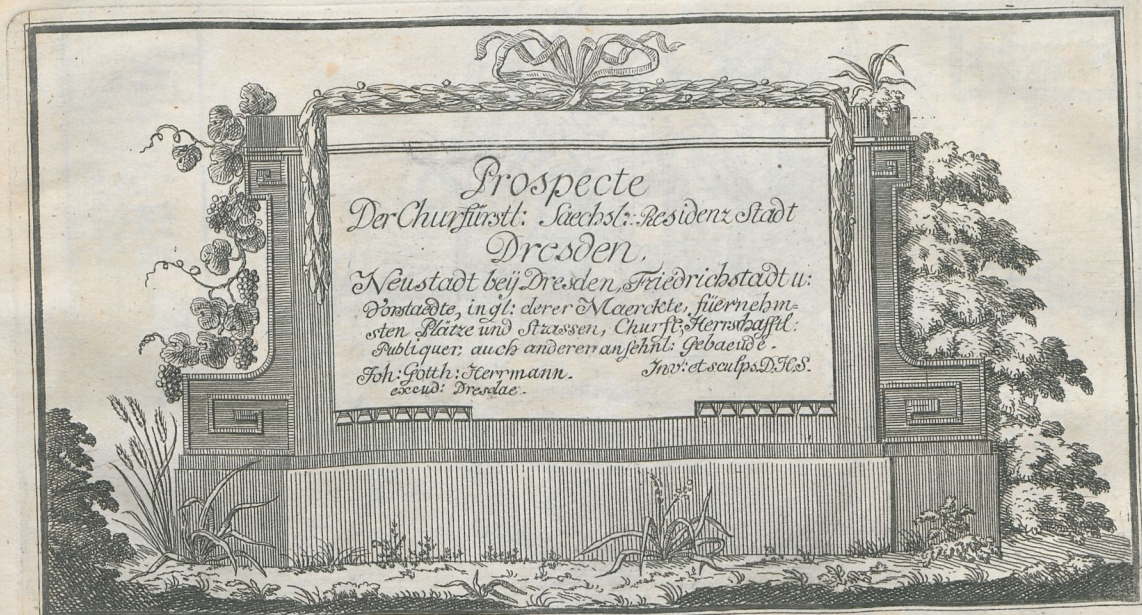 Prospecte
Der Churfürstl: Saechsl: Residenz Stadt
Dresden,
Neustadt beÿ Dresden, Friedrichstadt u:
Vorstaedte, ingl: derer Maerckte, füernehm=
sten Plätze und Strassen, Churfl: Herrschafftl:
Publiquer, auch anderer ansehnl: Gebaeude.
Joh: Gotth: Herrmann. Inv: et sculps. D.H.S.
excud: Dresdae.